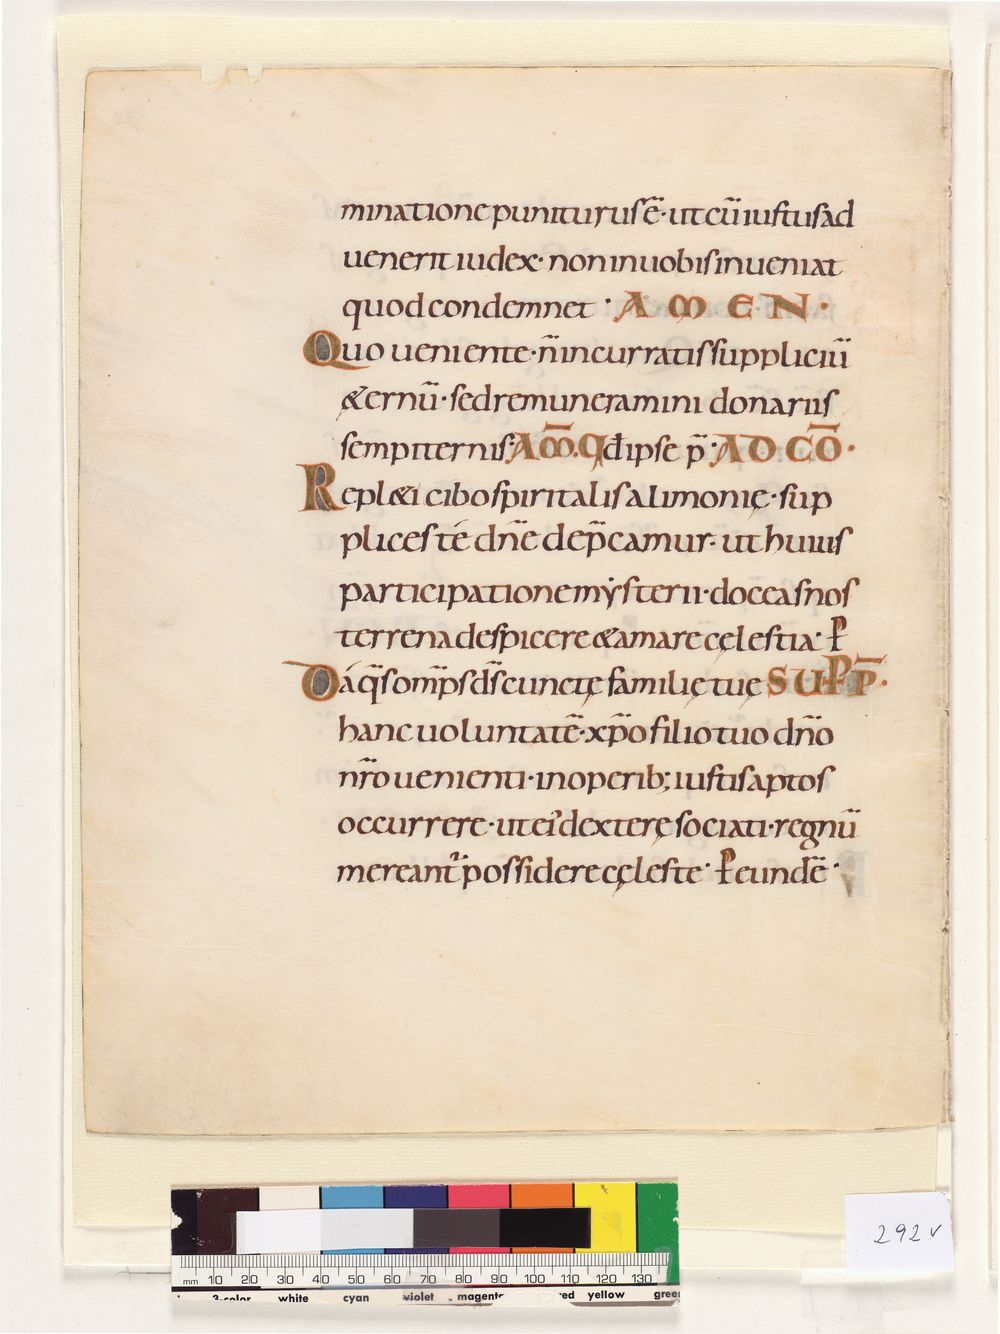 minatione puniturus ē· ut cū iustus ad
uenerit iudex· non in uobis inueniat
quod condemnet · AMEN·
Quo ueniente· ñ incurratis suppliciū
&ernū· sed remuneramini donariis
sempiternis· AM̄. Qđ ipse p̄· AD CŌ·
Repl&i cibo spiritalis alimonię· sup
plices té dñe dep̄camur· ut huius
participatione mẏsterii· doceas nos
terrena despicere & amare cęlestia· P̵
Dá q̄s om̄ps d̄s cunctę familię tuę SUP P̄P·
hanc uoluntatē· xp̄o filio tuo dño
nr̄o uenienti· in operib; iustis aptos
occurrere· ut ei dexterę sociati· regnū
mereant᷑ possidere cęleste· P̵ eundē·
292v
mm 10 20 30 40 50 60 70 80 90 100 110 120 130
3-color white cyan violet magenta red yellow green